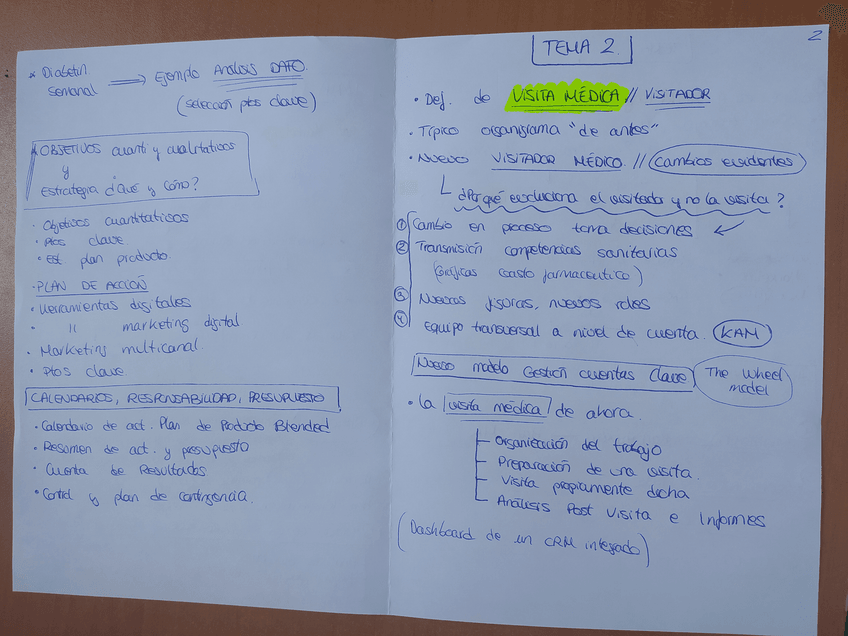 * Diabetin semanal ⟹ Ejemplo Análisis DAFO.
(selección ptos clave)
OBJETIVOS cuanti y cualitativos
y
Estrategia ¿Qué y cómo?
· Objetivos cuantitativos
· Ptos clave
· Est plan producto.
· PLAN DE ACCIÓN
· Herramientas digitales
· " marketing digital
· Marketing multicanal.
· Ptos clave
CALENDARIOS, RESPONSABILIDAD, PRESUPUESTO
· Calendario de act. Plan de Producto Blended
· Resumen de act. y presupuesto
· Cuenta de Resultados
· Control y plan de contingencia.
2
TEMA 2.
· Def. de VISITA MÉDICA // VISITADOR
· Típico organigrama "de antes"
· Nuevo VISITADOR MÉDICO. // Cambios evidentes
¿Por qué evoluciona el visitador y no la visita?
① Cambio en proceso toma decisiones ↙
② Transmisión competencias sanitarias
(Gráficas Gasto farmaceutico)
③ Nuevas figuras, nuevos roles
④ Equipo transversal a nivel de cuenta. KAM
Nuevo modelo Gestión cuentas Clave The wheel model
· La visita médica de ahora.
- Organización del trabajo
- Preparación de una visita.
- Visita propiamente dicha
- Análisis Post Visita e Informes
(Dashboard de un CRM integrado)